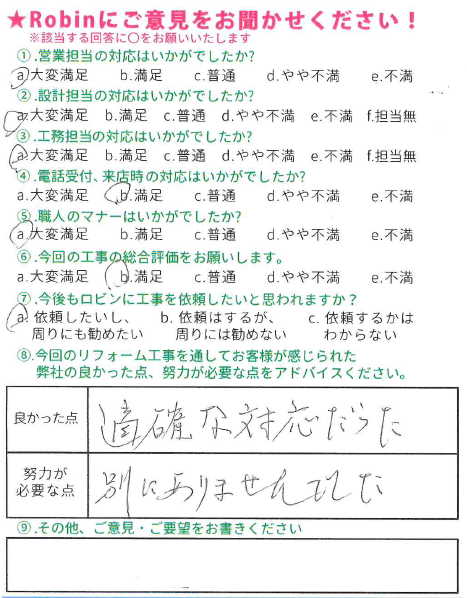 ★Robinにご意見をお聞かせください！
※該当する回答に〇をお願いいたします
①.営業担当の対応はいかがでしたか?
a.大変満足 b.満足 c.普通 d.やや不満 e.不満
②.設計担当の対応はいかがでしたか?
a.大変満足 b.満足 c.普通 d.やや不満 e.不満 f.担当無
③.工務担当の対応はいかがでしたか?
a.大変満足 b.満足 c.普通 d.やや不満 e.不満 f.担当無
④.電話受付、来店時の対応はいかがでしたか?
a.大変満足 b.満足 c.普通 d.やや不満 e.不満
⑤.職人のマナーはいかがでしたか?
a.大変満足 b.満足 c.普通 d.やや不満 e.不満
⑥.今回の工事の総合評価をお願いします。
a.大変満足 b.満足 c.普通 d.やや不満 e.不満
⑦.今後もロビンに工事を依頼したいと思われますか？
a. 依頼したいし、 b. 依頼はするが、 c. 依頼するかは
周りにも勧めたい 周りには勧めない わからない
⑧.今回のリフォーム工事を通してお客様が感じられた
弊社の良かった点、努力が必要な点をアドバイスください。
良かった点 適確な対応だった
努力が
必要な点 別にありませんでした
⑨.その他、ご意見・ご要望をお書きください